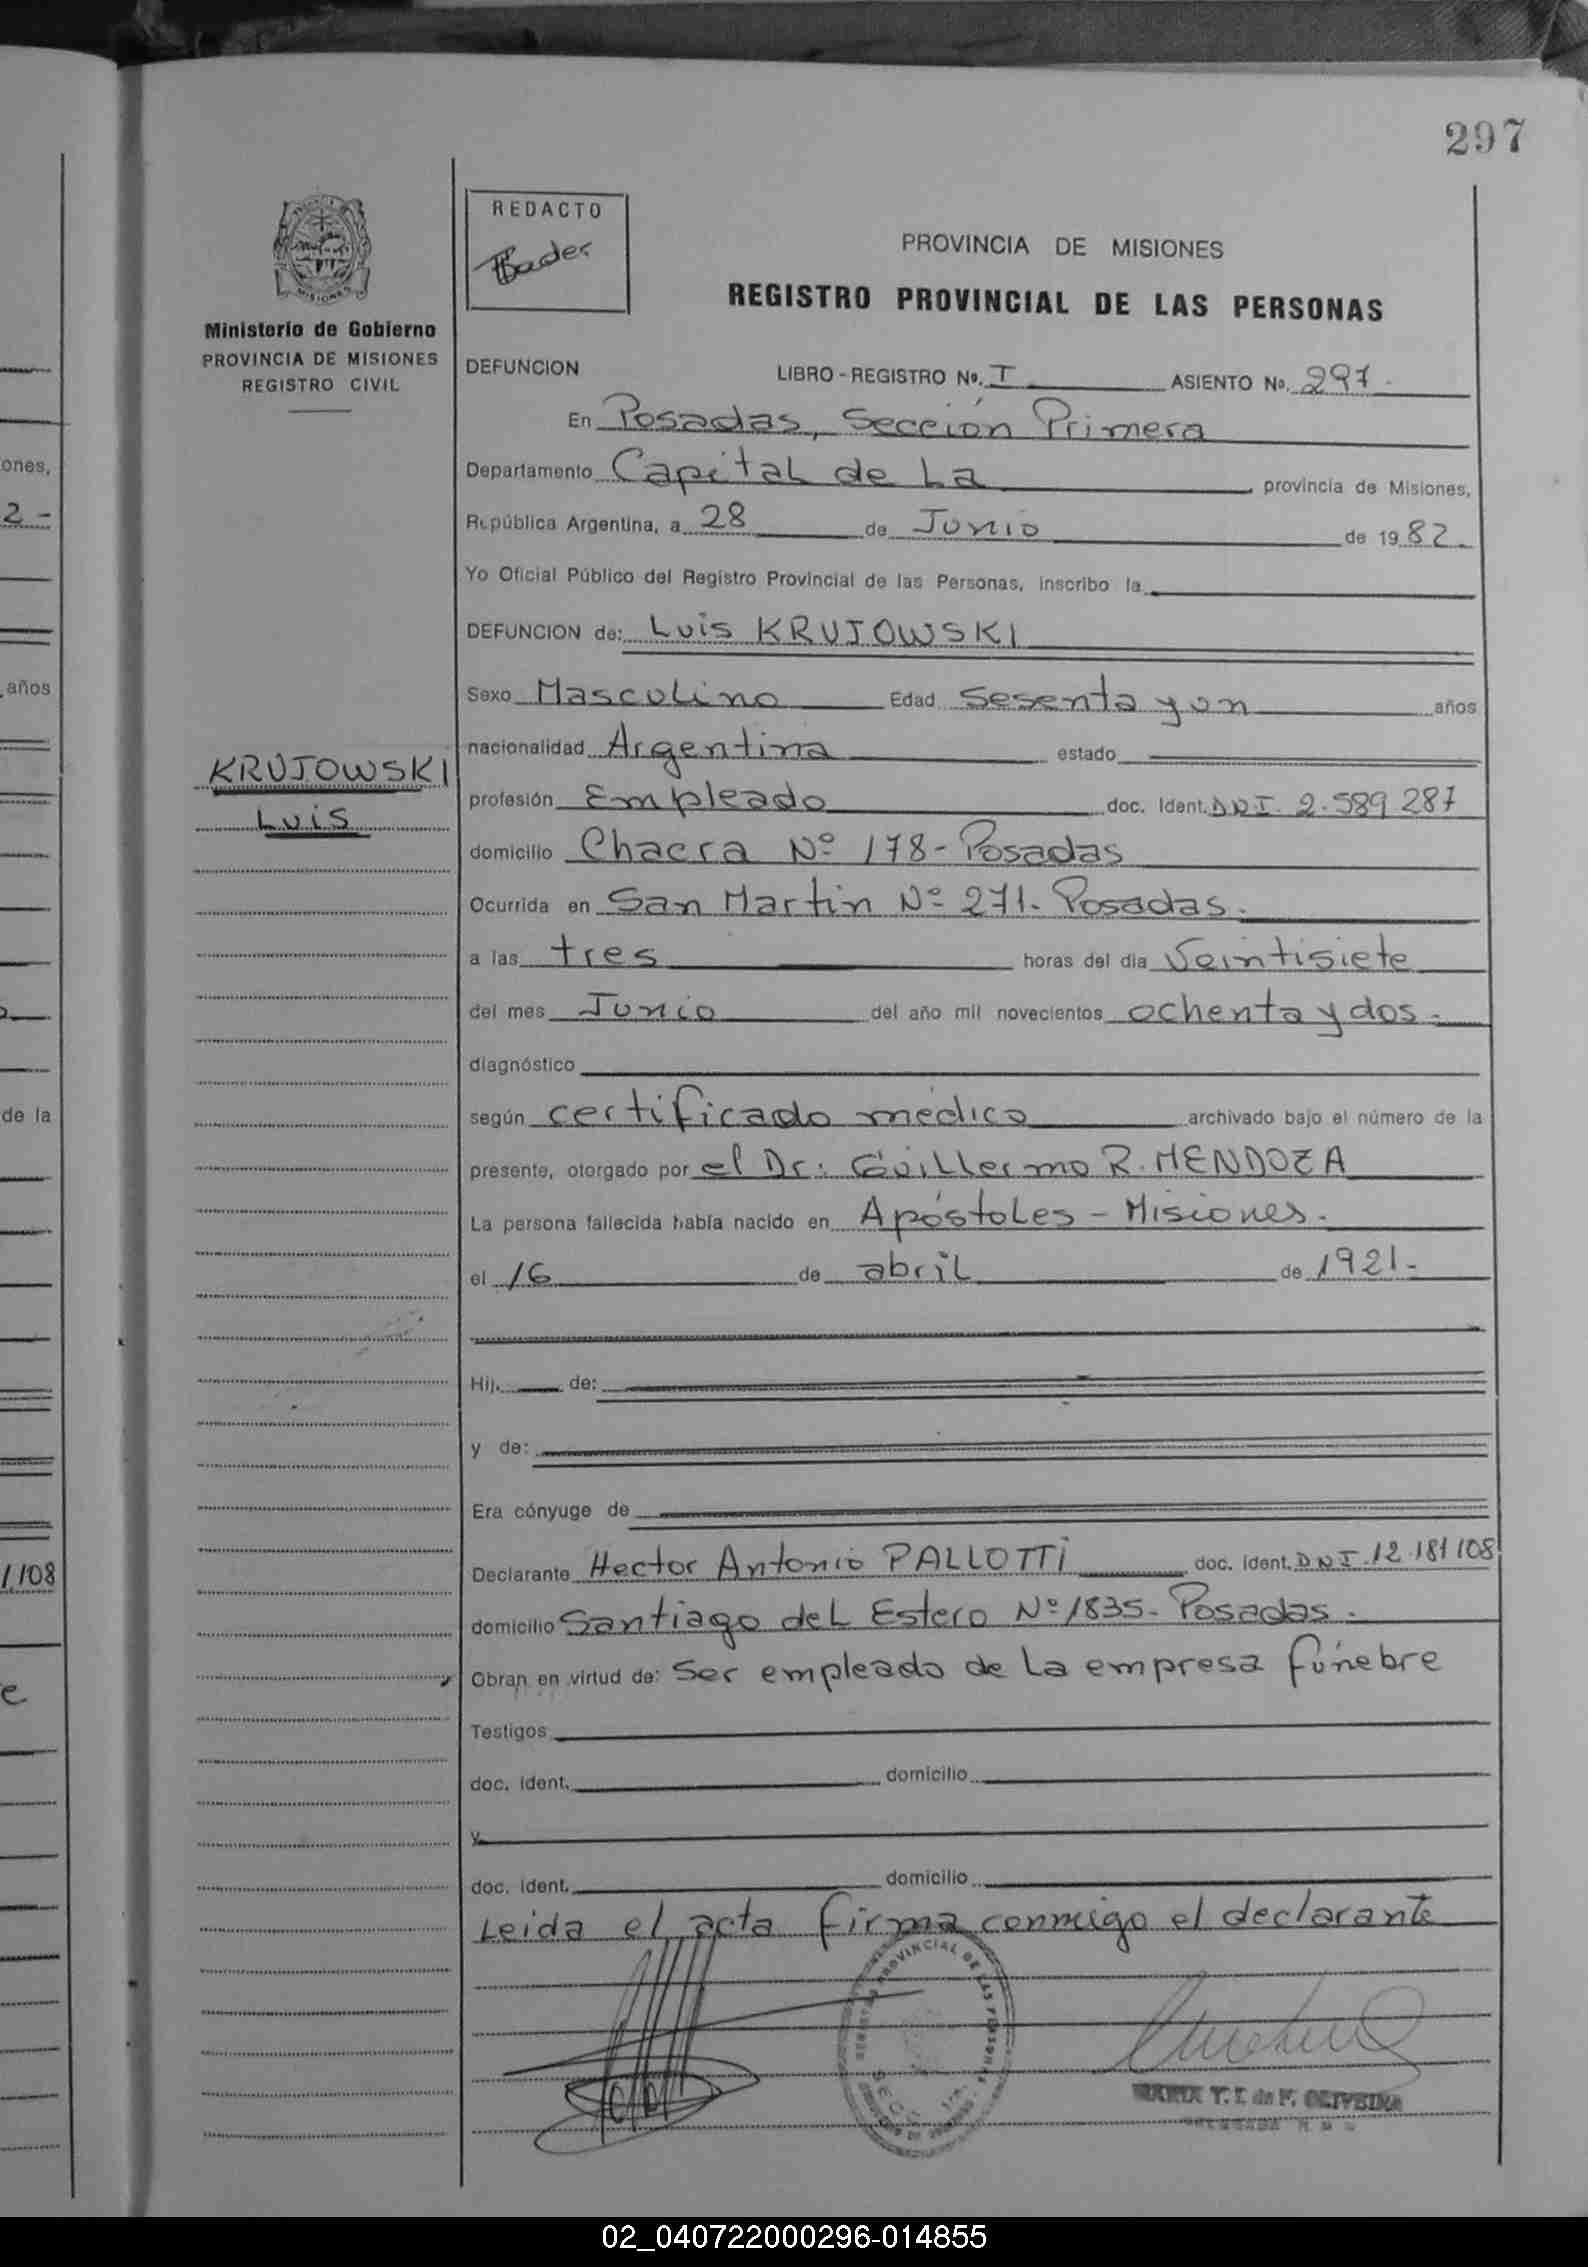 297
MISIONES
Ministerio de Gobierno
PROVINCIA DE MISIONES
REGISTRO CIVIL
REDACTO
Bader
PROVINCIA DE MISIONES
REGISTRO PROVINCIAL DE LAS PERSONAS
DEFUNCION LIBRO - REGISTRO Nº. I ASIENTO Nº. 297.
En Posadas, Sección Primera
Departamento Capital de La provincia de Misiones,
República Argentina, a 28 de Junio de 1982.
Yo Oficial Público del Registro Provincial de las Personas, inscribo la
DEFUNCION de: Luis KRUJOWSKI
Sexo Masculino Edad sesenta y un años
nacionalidad Argentina estado
KRUJOWSKI
Luis
profesión Empleado doc. Ident. DNI. 2.589 287
domicilio Chacra Nº 178- Posadas
Ocurrida en San Martin Nº 271. Posadas.
a las tres horas del día Veintisiete
del mes Junio del año mil novecientos ochenta y dos.
diagnóstico
según certificado médico archivado bajo el número de la
presente, otorgado por el Dr: Guillermo R. MENDOZA
La persona fallecida había nacido en Apóstoles - Misiones.
el 16 de abril de 1921.
Hij. de:
y de:
Era cónyuge de
Declarante Hector Antonio PALLOTTi doc. ident. DNI. 12.181 108
domicilio Santiago del Estero Nº 1835- Posadas.
Obran en virtud de: ser empleado de la empresa fúnebre
Testigos
doc. ident. domicilio
y
doc. ident. domicilio
Leida el acta firma conmigo el declarante
PROVINCIAL DE LAS PERSONAS
MARIA T. I. de F. OLIVEIRA
ones,
2 -
años
de la
1108
e
02_040722000296-014855